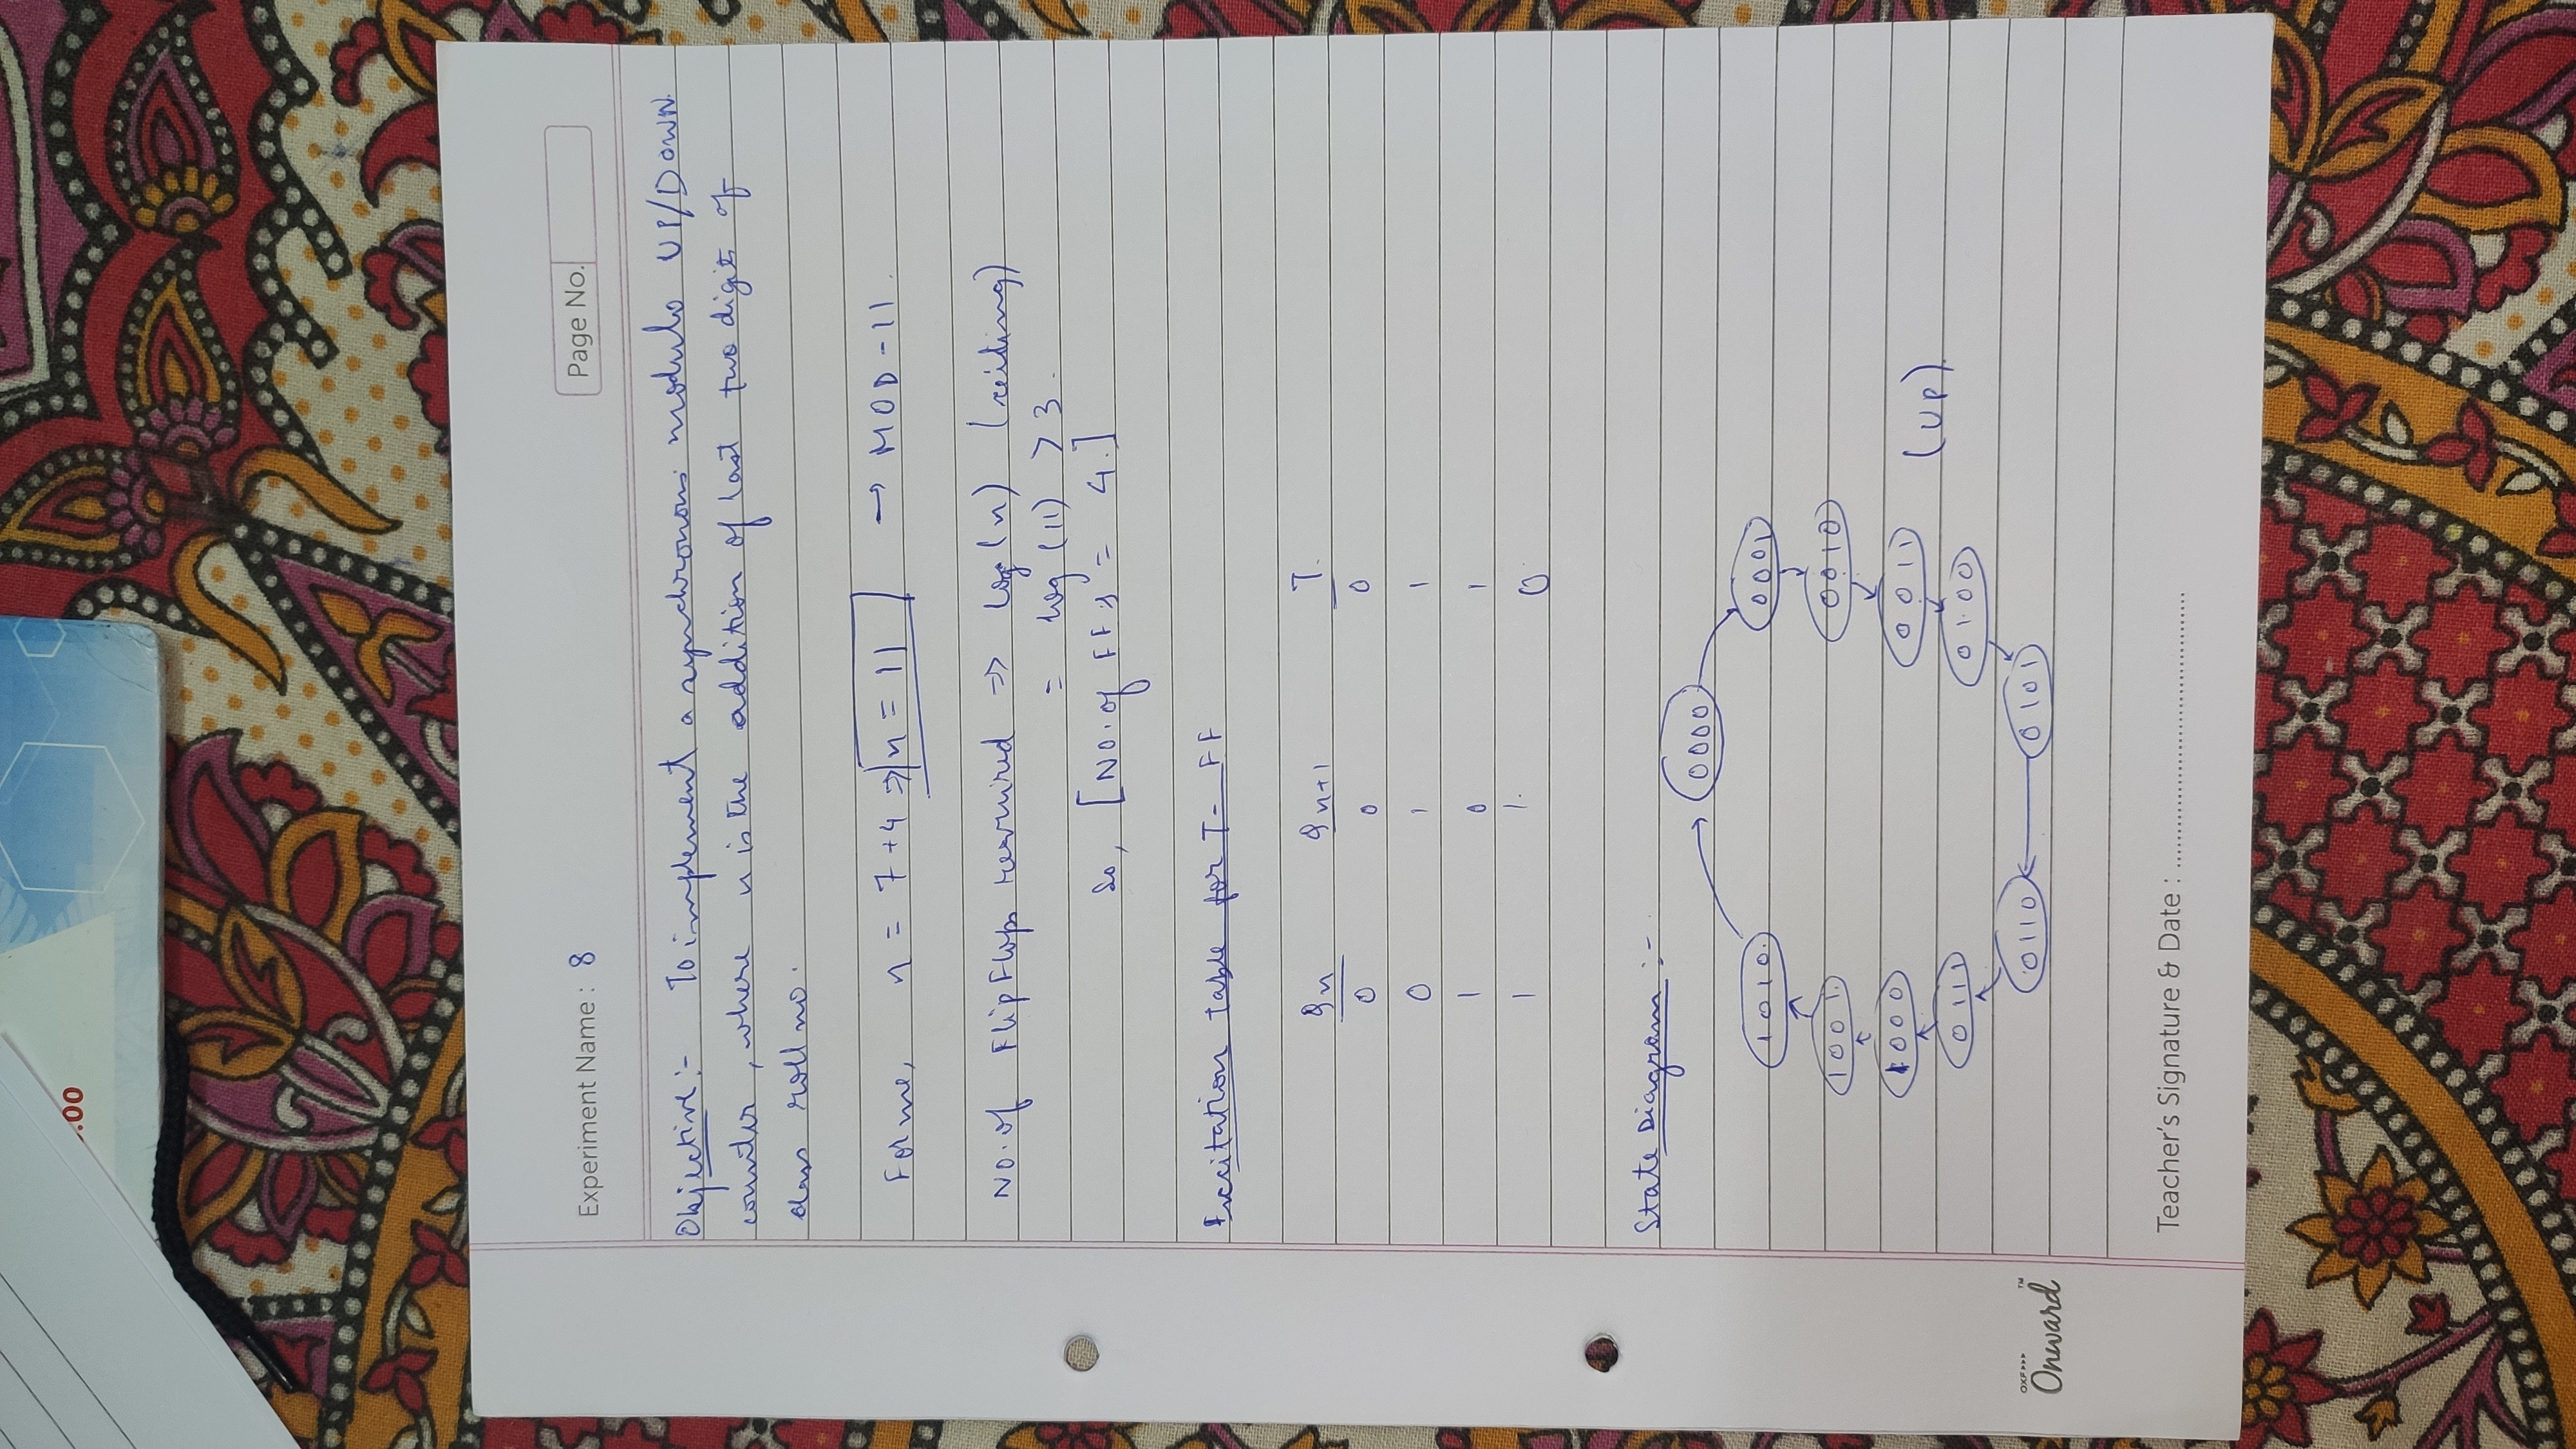 .00
Experiment Name : 8
Page No.
Objective:- To implement a synchronous modulo UP/DOWN
counter, where n is the addition of last two digits of
class roll no.
For me, n = 7+4 ⇒ n = 11 → MOD-11.
No. of Flip Flops required ⇒ log(n) (ceiling)
= log(11) > 3.
So, [No. of FF's = 4.]
Excitation table for T- FF
Qn Qn+1 T.
0 0 0
0 1 1
1 0 1
1 1. 0
State Diagram :-
0000
1010. 0001
1001. 0010
1000 0011 (UP).
0111 0100
0110 0101
OXF▸▸▸ TM
Onward
Teacher's Signature & Date : ........................................